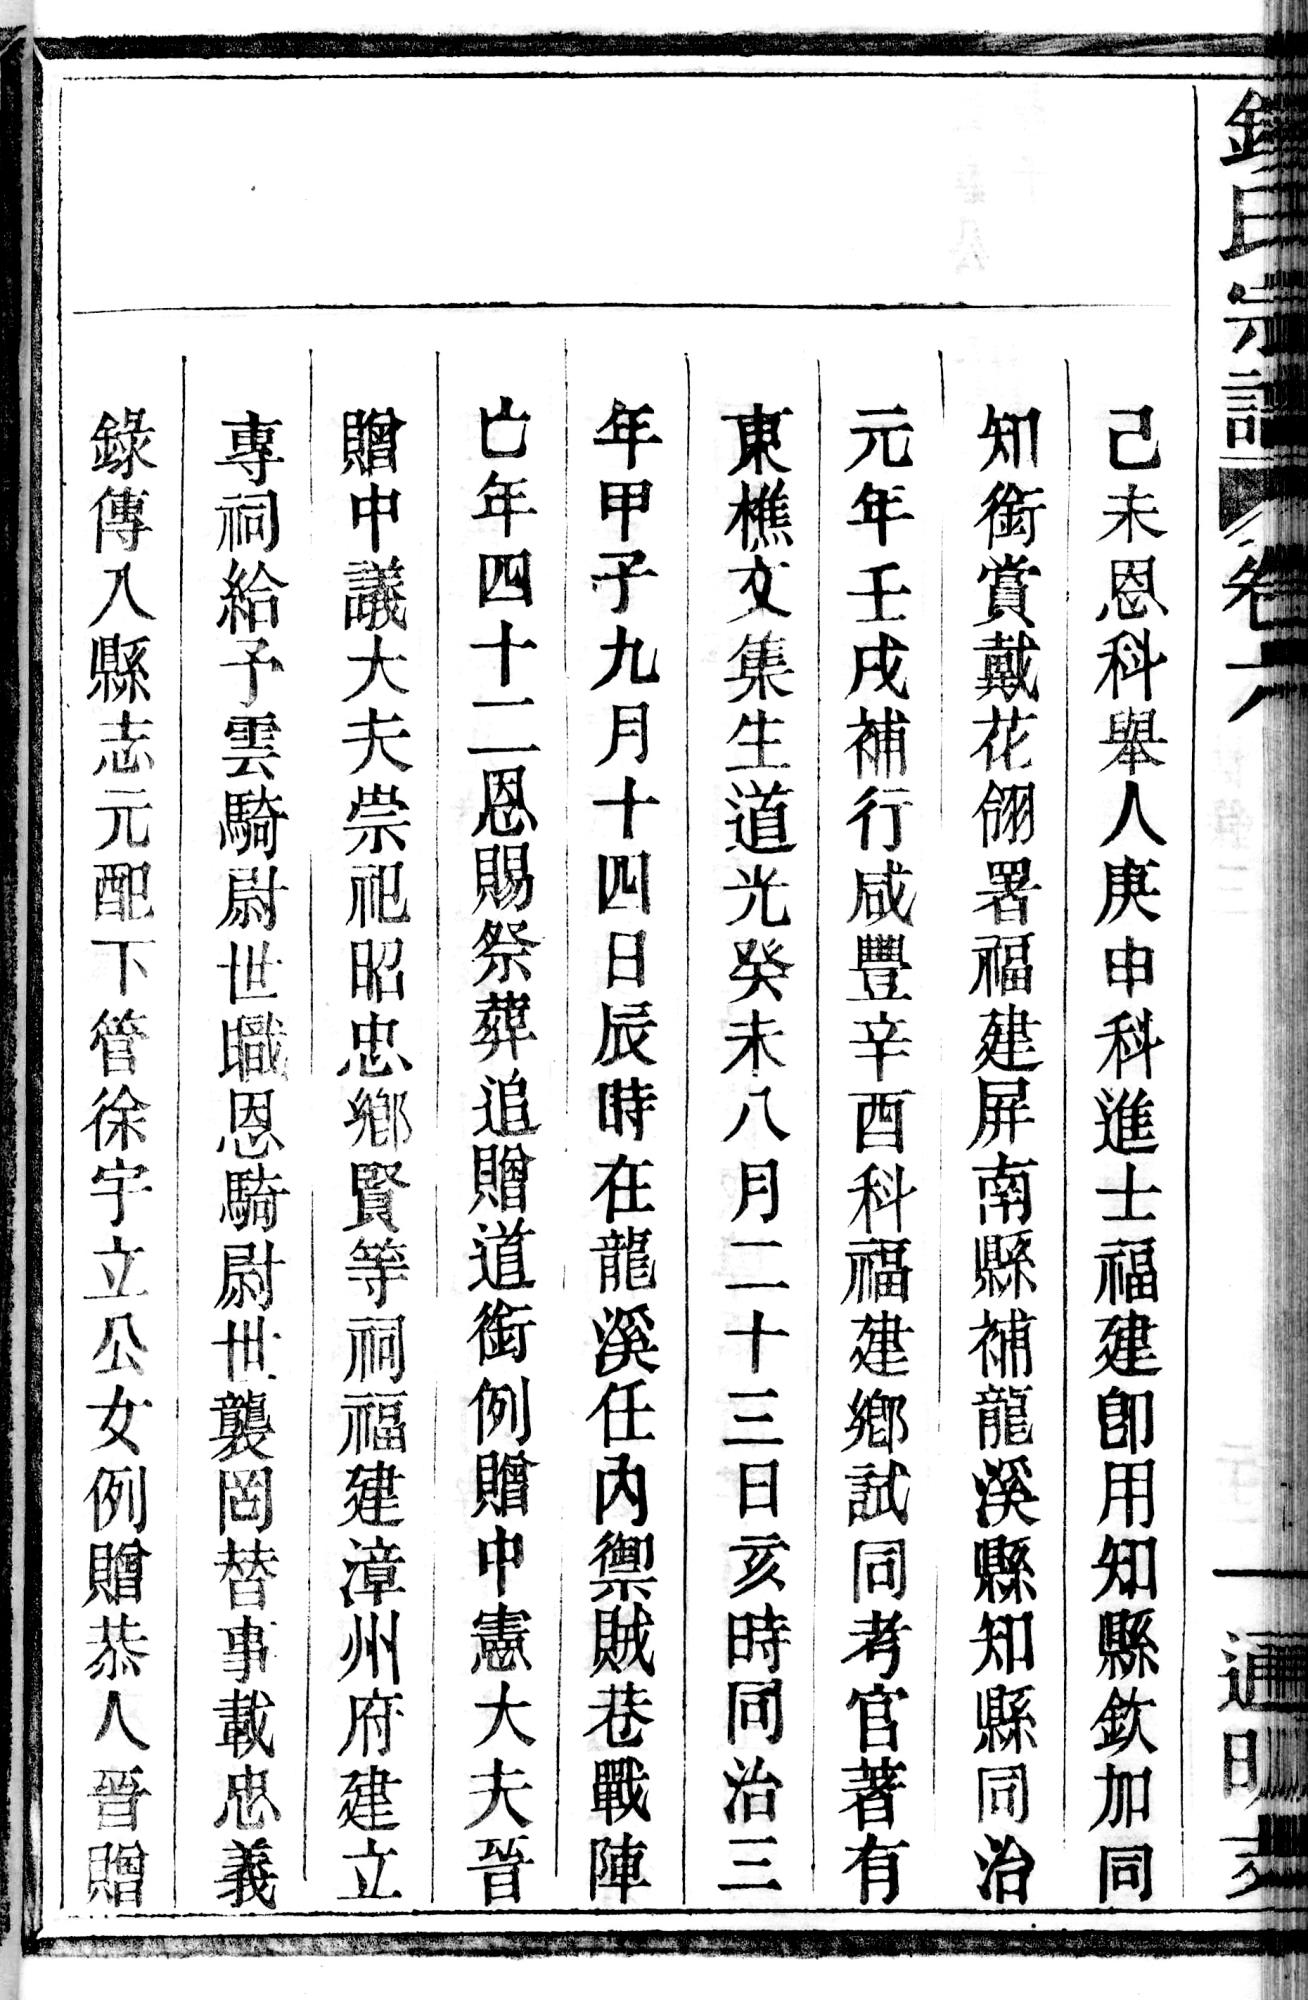 氏宗譜 卷六
己未恩科舉人庚申科進士福建卽用知縣欽加同
知銜賞戴花翎署福建屏南縣補龍溪縣知縣同治
元年壬戌補行咸豐辛酉科福建鄉試同考官著有
東樵文集生道光癸未八月二十三日亥時同治三
年甲子九月十四日辰時在龍溪任內禦賊巷戰陣
亡年四十二恩賜祭葬追贈道銜例贈中憲大夫晉
贈中議大夫崇祀昭忠鄉賢等祠福建漳州府建立
專祠給予雲騎尉世職恩騎尉世襲罔替事載忠義
錄傳入縣志元配下管徐宇立公女例贈恭人晉贈